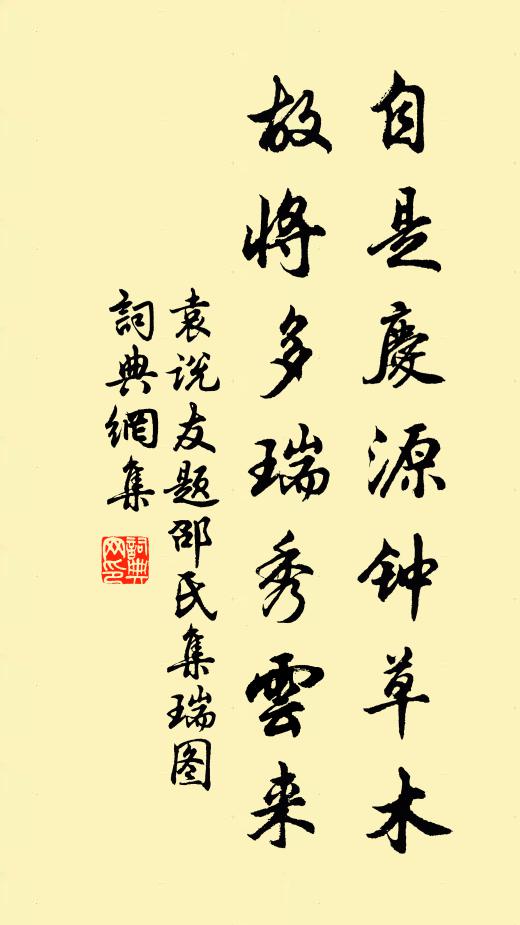 自是慶源钟草木
故将多瑞秀雲来
袁说友题邵氏集瑞图
詞典網集
詞典
网印